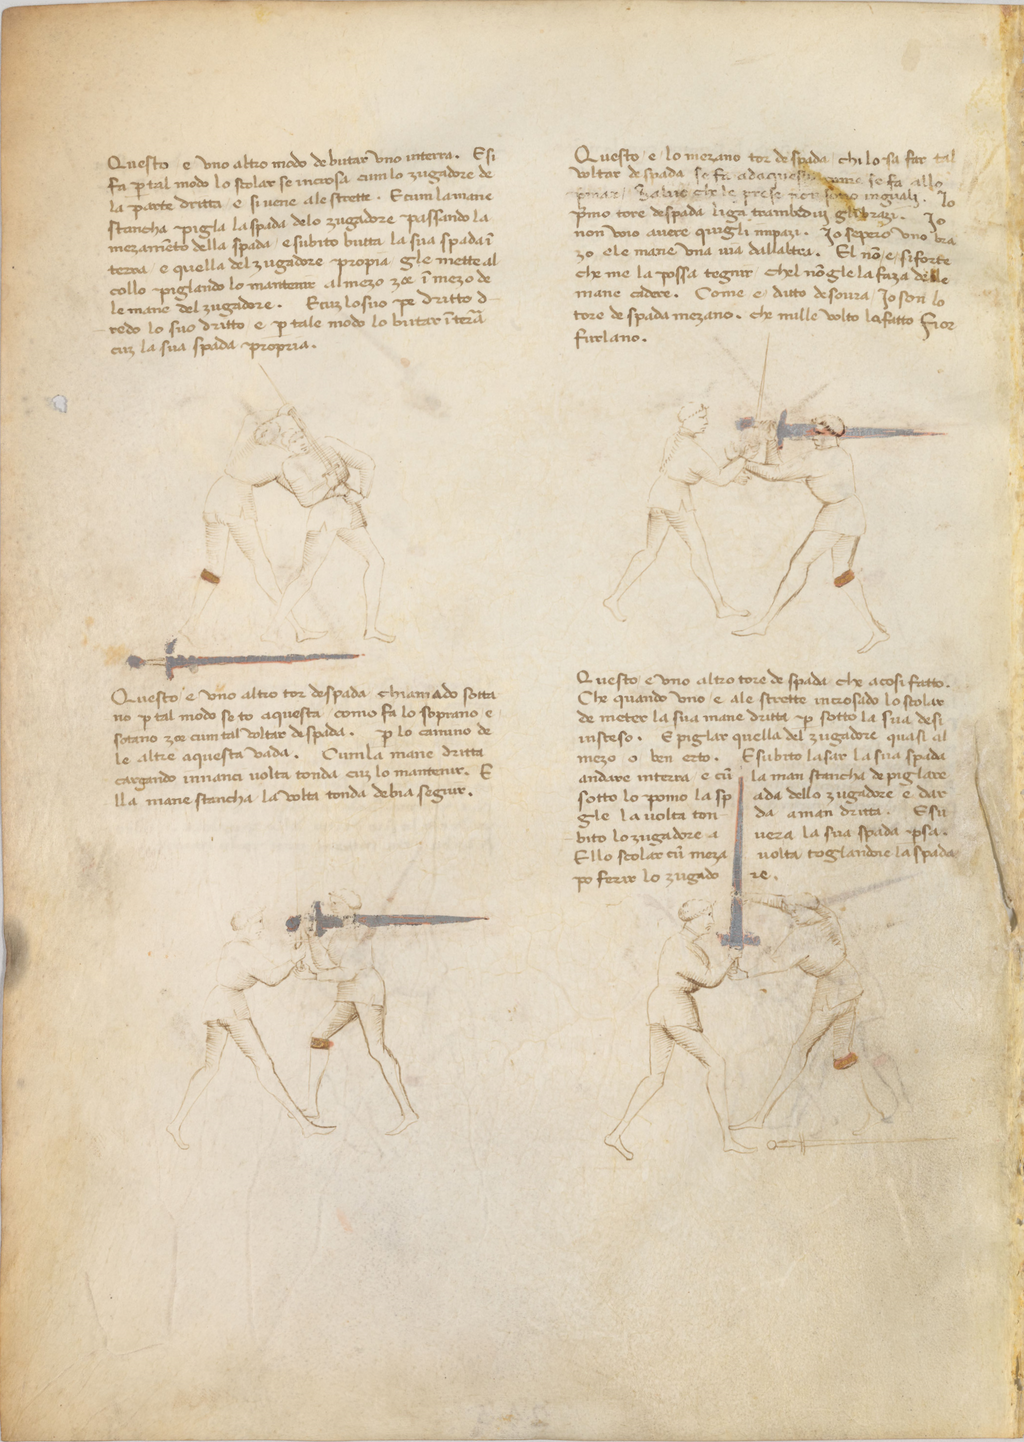 Questo e uno altro modo de butar uno in terra. E si
fa p tal modo lo scolar se incrosa cum lo zugadore de
la parte dritta e si vene ale strette. E cum la mane
stancha pigla la spada delo zugadore passando la
mezamēto della spada e subito butta la sua spada ī
terra e quella del zugadore propia gle mette al
collo piglando lo mantenir al mezo zoe ī mezo de
le mane del zugadore. E cuz lo suo pe dritto d
redo lo suo dritto e p tale modo lo butar ī terā
cuz la sua spada propria.
Questo e uno altro tor de spada chiamado sotta
no p tal modo se to aquesta como fa lo soprano e
sotano zoe cum tal voltar de spada. p lo camino de
le altre aquesta vada. Cum la mane dritta
cargando innanci volta tonda cuz lo mantenir. E
lla mane stancha la volta tonda debia seguir.
Questo e lo mezano tor de spada chi lo sa far tal
voltar de spada se fa adaquesta come se fa allo
primar. Zalvie che le prese non sono inguali. Io
pmo tore de spada liga trambedui gli brazi. Io
non voio avere quigli impazi. Io sepero uno bra
zo e le mane una via dall altra. El nō e si forte
che me la possa tegnir chel nō gle la faza de le
mane cadere. Come e ditto de soura Io son lo
tore de spada mezano. che mille volto lo fatto Fior
furlano.
Questo e uno altro tore de spada che a cosi fatto.
Che quando uno e ale strette incrosado lo scolar
de meter la sua mane dritta p sotto la sua desi
insteso. E piglar quella del zugadore quasi al
mezo o ben erto. E subito lasar la sua spada
andare in terra e cū la man stancha de piglare
sotto lo pomo la spada dello zugadore e dar
gle la volta tonda a man dritta. E su
bito lo zugadore avera la sua spada psa.
E llo scolar cū meza volta toglandoie la spada
po ferir lo zugadore.